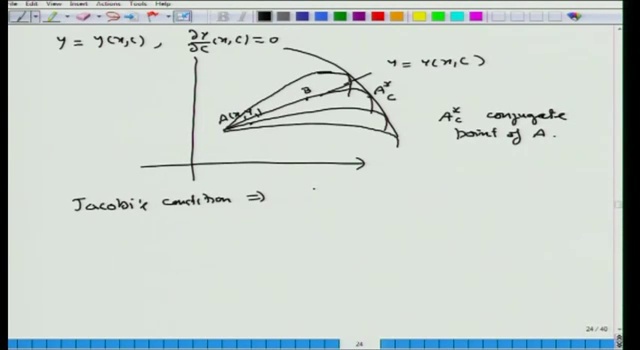 File Edit View Insert Actions Tools Help
y = y(x,c), ∂y/∂c (x,c) = 0
y = y(x,c)
B
A*c
A(x₁,y₁)
A*c conjugate
point of A.
Jacobi's condition ⇒
24 / 40
24